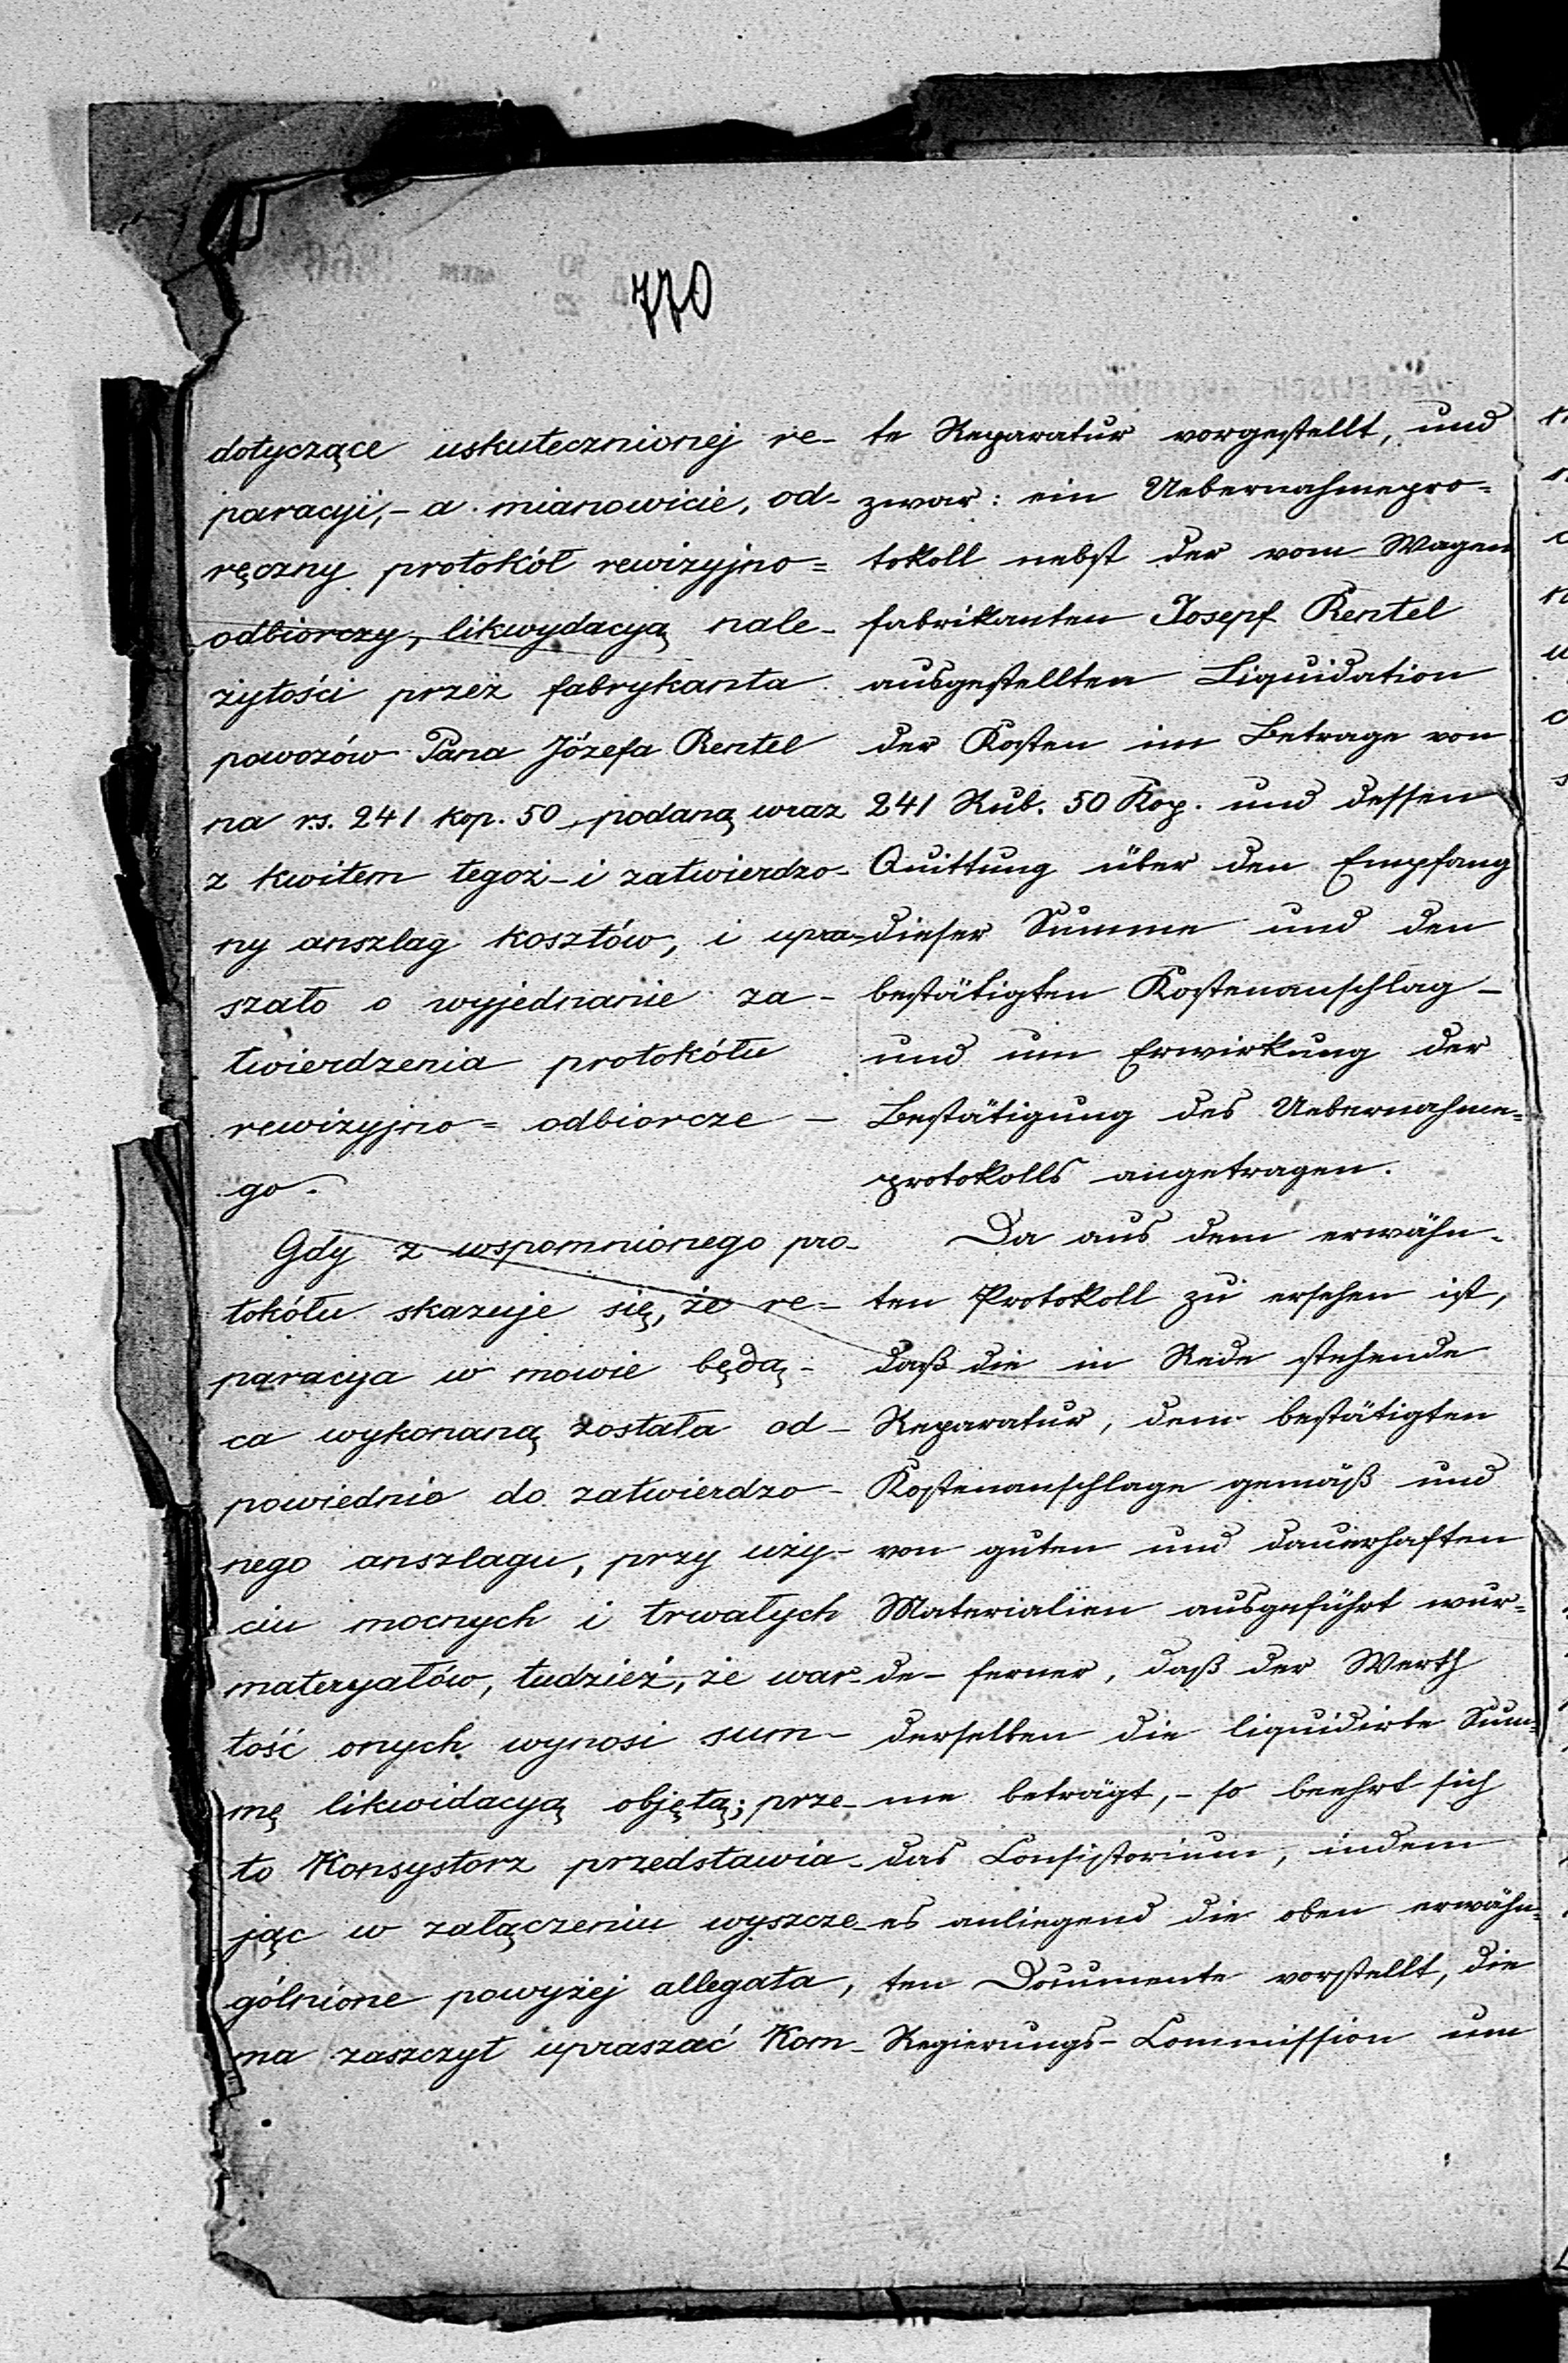 770
dotyczące uskutecznionej re-
paracyi,- a mianowicie, od-
ręczny protokół rewizyjno=
odbiorczy, likwydacyą nale-
żytości przez fabrykanta
powozów Pana Józefa Rentel
na rs. 241 kop. 50, podaną wraz
z kwitem tegoż - i zatwierdzo-
ny anszlag kosztów, i upra-
szało o wyjednanie za-
twierdzenia protokółu
rewizyjno= odbiorcze-
go.
Gdy z wspomnionego pro-
tokółu skazuje się, że re=
paracya w mowie będą-
ca wykonaną została od-
powiednio do zatwierdzo-
nego anszlagu, przy uży-
ciu mocnych i trwałych
materyałów, tudzież, że war-
tość onych wynosi sum-
mę likwidacyą objętą; prze-
to Konsystorz przedstawia-
jąc w załączeniu wyszcze-
gólnione powyżej allegata,
ma zaszczyt upraszać Kom-
te Reparatur vorgestellt, und
zwar: ein Uebernahmepro=
tokoll nebst der vom Wagen
fabrikanten Josepf Rentel
ausgestellten Liquidation
der Kosten im Betrage von
241 Rub. 50 Kop. und dessen
Quittung über den Empfang
dieser Summe und den
bestätigten Kostenanschlag -
und um Erwirkung der
Bestätigung des Uebernahme=
protokolls angetragen.
Da aus dem erwähn-
ten Protokoll zu ersehen ist,
daß die in Rede stehende
Reparatur, dem bestätigten
Kostenanschlage gemäß und
von guten und dauerhaften
Materialien ausgeführt wur=
de - ferner, daß der Werth
derselben die liquidirte Sum=
me beträgt, - so beehrt sich
das Consistorium, indem
es anliegend die oben erwähn=
ten Documente vorstellt, die
Regierungs-Commission um